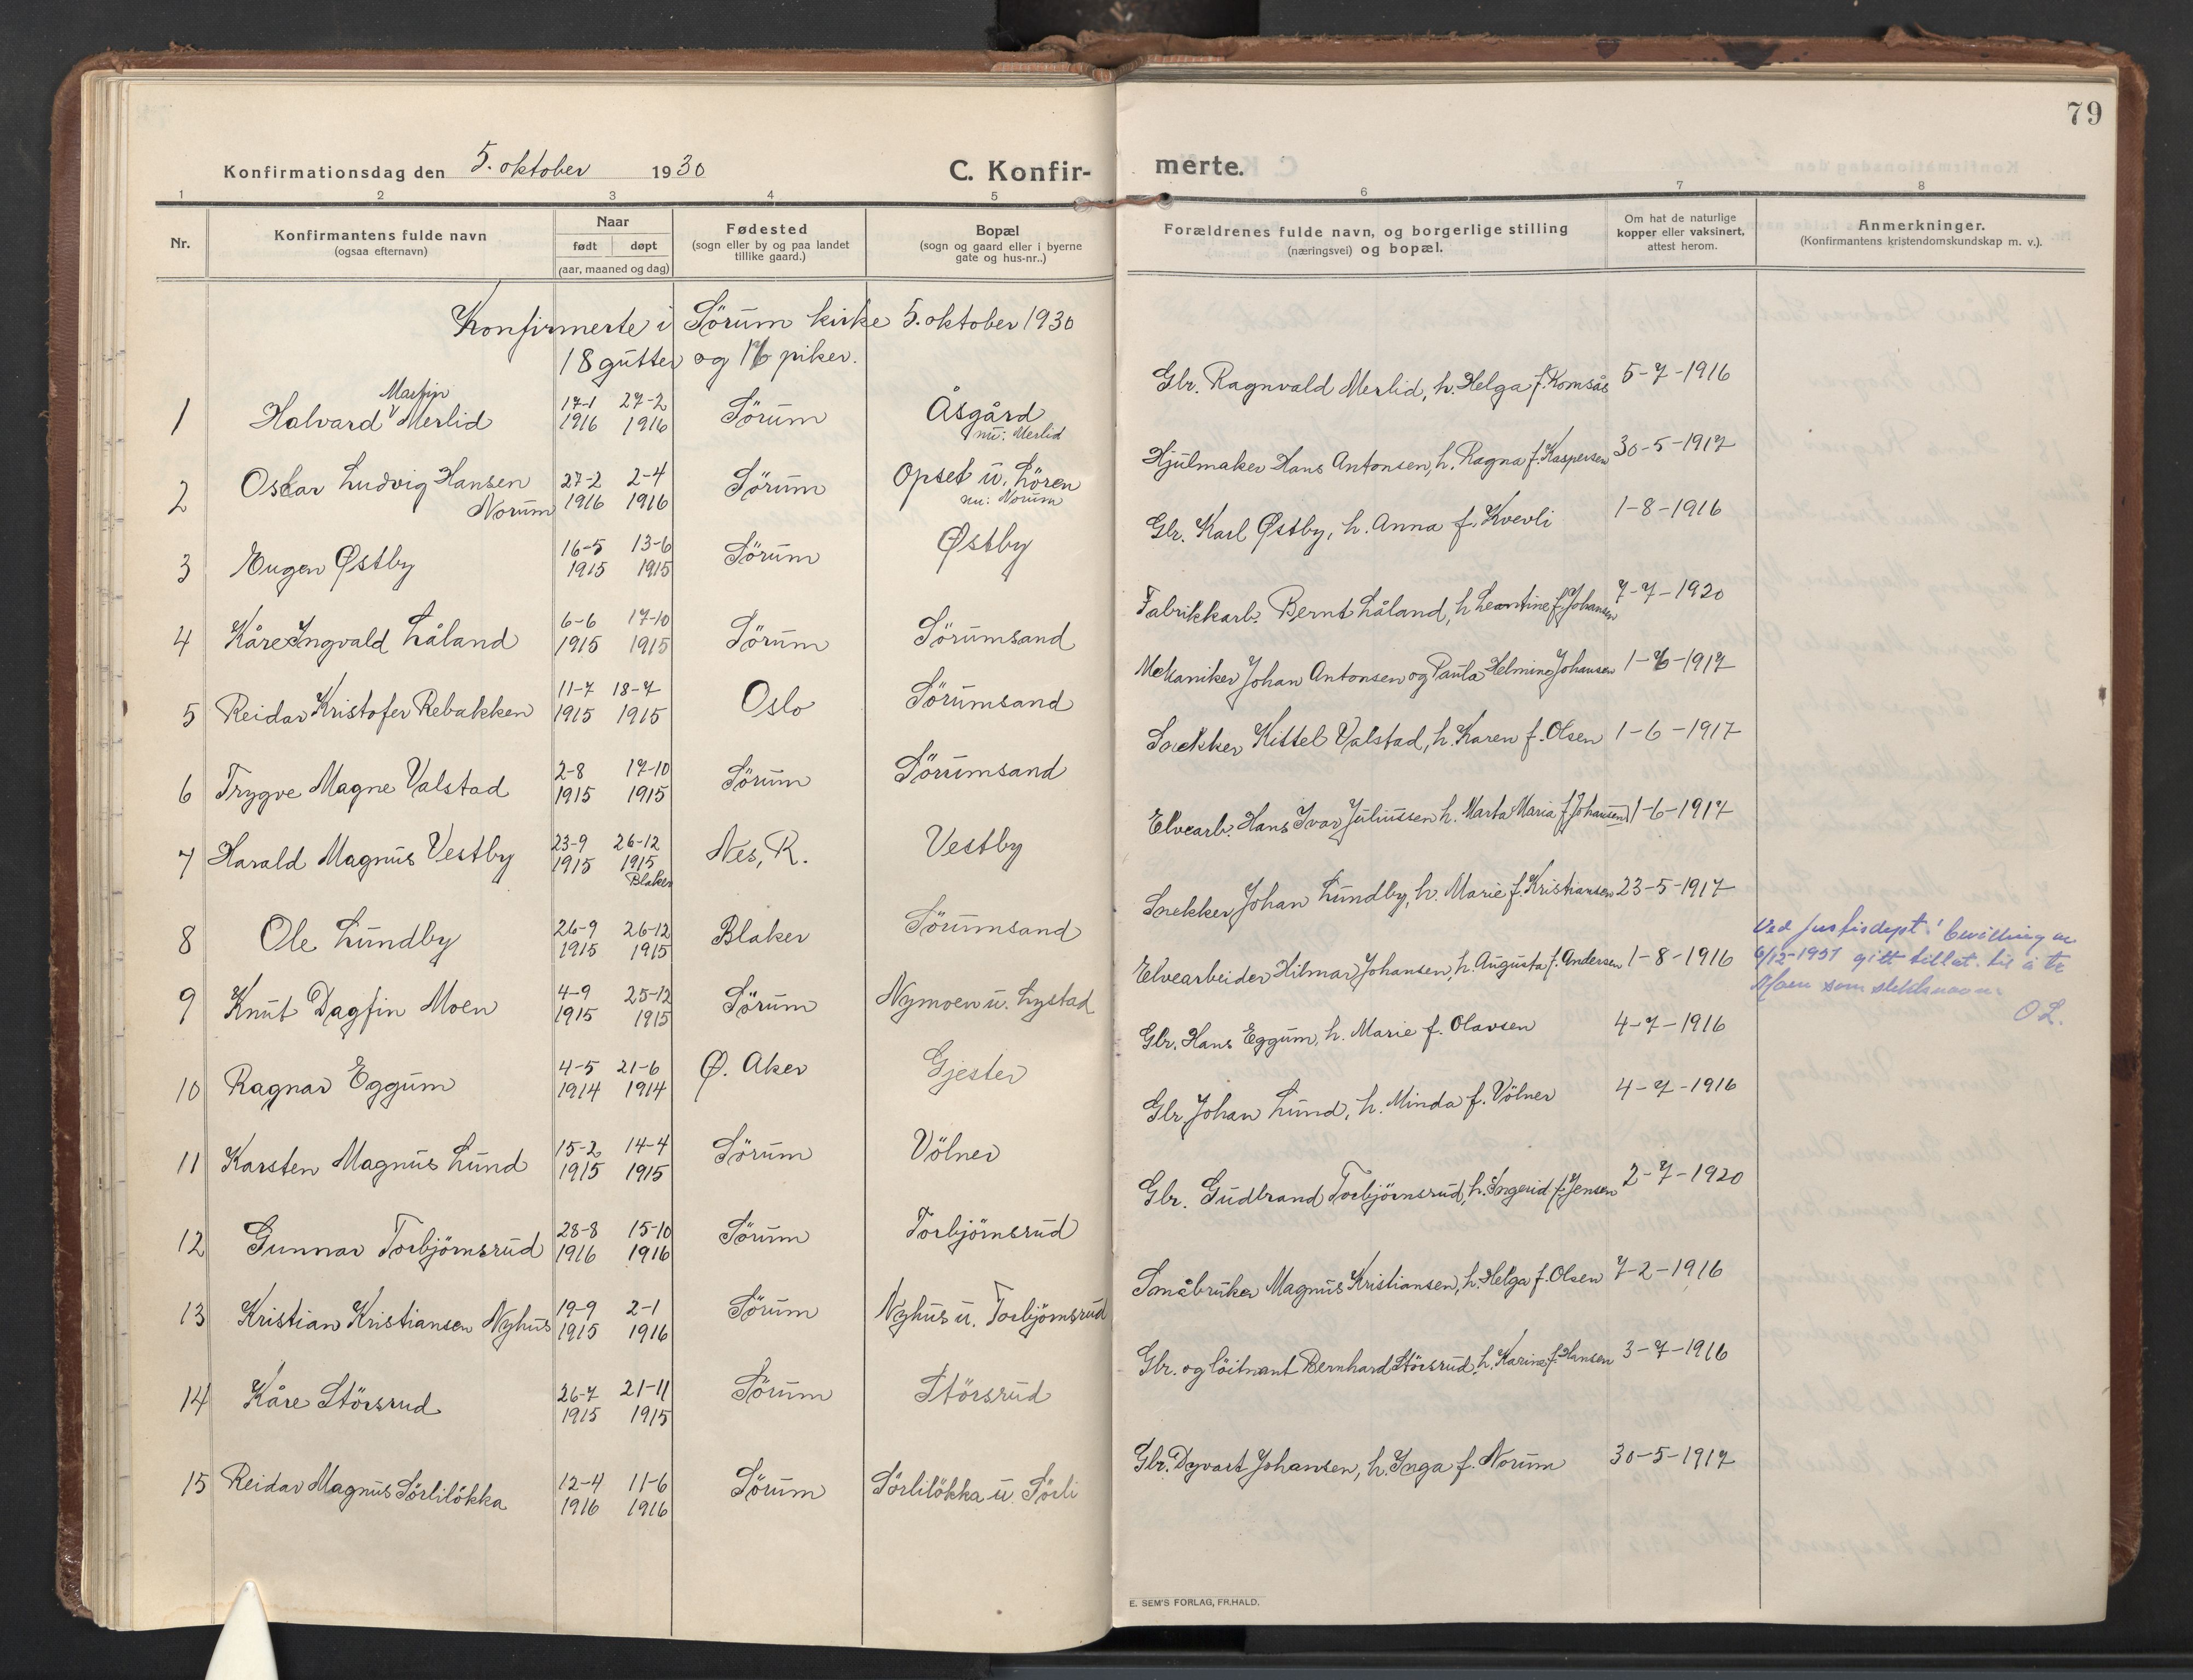 79
Konfirmationsdag den 5. oktober 1930
C. Konfir-
merte.
1 2 3 4 5 6 7 8
Nr.
Konfirmantens fulde navn
(ogsaa efternavn)
Naar
født døpt
(aar, maaned og dag)
Fødested
(sogn eller by og paa landet
tillike gaard.)
Bopæl
(sogn og gaard eller i byerne
gate og hus-nr..)
Forældrenes fulde navn, og borgerlige stilling
(næringsvei) og bopæl.
Om hat de naturlige
kopper eller vaksinert,
attest herom.
Anmerkninger.
(Konfirmantens kristendomskundskap m. v.).
Konfirmerte i Sörum kirke 5. oktober 1930
18 gutter og 16 piker.
Martin
1 Halvard Merlid 17-1 1916 27-2 1916 Sörum Åsgård
nu: Merlid
Gbr. Ragnvald Merlid, h. Helga f. Komsås 5-7-1916
2 Oskar Ludvig Hansen
Norum 27-2 1916 2-4 1916 Sörum Opset u. Lören
nu: Norum
Hjulmaker Hans Antonsen, h. Ragna f. Kaspersen 30-5-1917
3 Eugen Østby 16-5 1915 13-6 1915 Sörum Østby
Gbr. Karl Østby, h. Anna f. Kvevli 1-8-1916
4 Kåre Ingvald Låland 6-6 1915 17-10 1915 Sörum Sörumsand
Fabrikkarb. Bernt Låland, h. Leontine f. Johansen 7-7-1920
5 Reidar Kristofer Rebakken 11-7 1915 18-7 1915 Oslo Sörumsand
Mekaniker Johan Antonsen og Paula Helmine Johansen 1-6-1917
6 Trygve Magne Valstad 2-8 1915 17-10 1915 Sörum Sörumsand
Snekker Kittel Valstad, h. Karen f. Olsen 1-6-1917
7 Harald Magnus Vestby 23-9 1915 26-12 1915 Blaker Nes, R. Vestby
Elvearb. Hans Ivar Juliussen h. Marta Maria f. Johansen 1-6-1917
8 Ole Lundby 26-9 1915 26-12 1915 Blaker Sörumsand
Snekker Johan Lundby, h. Marie f. Kristiansen 23-5-1917
9 Knut Dagfin Moen 4-9 1915 25-12 1915 Sörum Nymoen u. Lystad
Elvearbeider Hilmar Johansen, h. Augusta f. Andersen 1-8-1916
Ved Justisdept.' bevilling av
6/12-1951 gitt tillat. til å ta
Moen som slektsnavn.
O L.
10 Ragnar Eggum 4-5 1914 21-6 1914 Ø. Aker Gjester
Gbr. Hans Eggum, h. Marie f. Olavsen 4-7-1916
11 Karsten Magnus Lund 15-2 1915 14-4 1915 Sörum Völner
Gbr. Johan Lund, h. Minda f. Völner 4-7-1916
12 Gunnar Torbjörnsrud 28-8 1916 15-10 1916 Sörum Torbjörnsrud
Gbr. Gudbrand Torbjörnsrud, h. Ingerid f. Jensen 2-7-1920
13 Kristian Kristiansen Nyhus 19-9 1915 2-1 1916 Sörum Nyhus u. Torbjörnsrud
Småbruker Magnus Kristiansen, h. Helga f. Olsen 7-2-1916
14 Kåre Störsrud 26-7 1915 21-11 1915 Sörum Störsrud
Gbr. og löitnant Bernhard Störsrud, h. Karine f. Hansen 3-7-1916
15 Reidar Magnus Sörlilökka 12-4 1916 11-6 1916 Sörum Sörlilökka u. Sörli
Gbr. Dyvart Johansen, h. Inga f. Norum 30-5-1917
E. SEM'S FORLAG, FR.HALD.